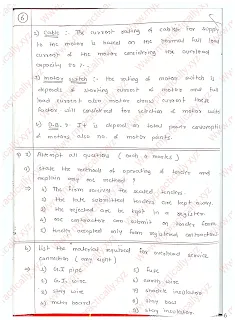 6
c) Cable :- The current rating of cables for supply
to the motor is based on the normal full load
current of the motor considering the overload
capacity to
d) motor switch :- the rating of motor switch is
depends on working current of motor and full
load current also motor stray current these
factors will considered for selection of motor switch
b) It is depend on total power consumption
of motors, also no. of motor points.
Attempt all questions (each 4 marks)
a) State the methods of opening of tender and
explain any one method ?
→ 1) The firm receives the sealed tenders.
2) the late submitted tenders can kept away.
3) the rejected can be kept in a register.
4) one contractor can submit one tender form
5) tender accepted only form registered contractors
b) List the material required for overhead service
connection (any eight)
→ 1) G.I. pipe
2) G.I. wire
3) stay wire
4) meter board
5) fuse
6) earth wire
7) shackle insulator
8) stay rod
9) stay insulator
6